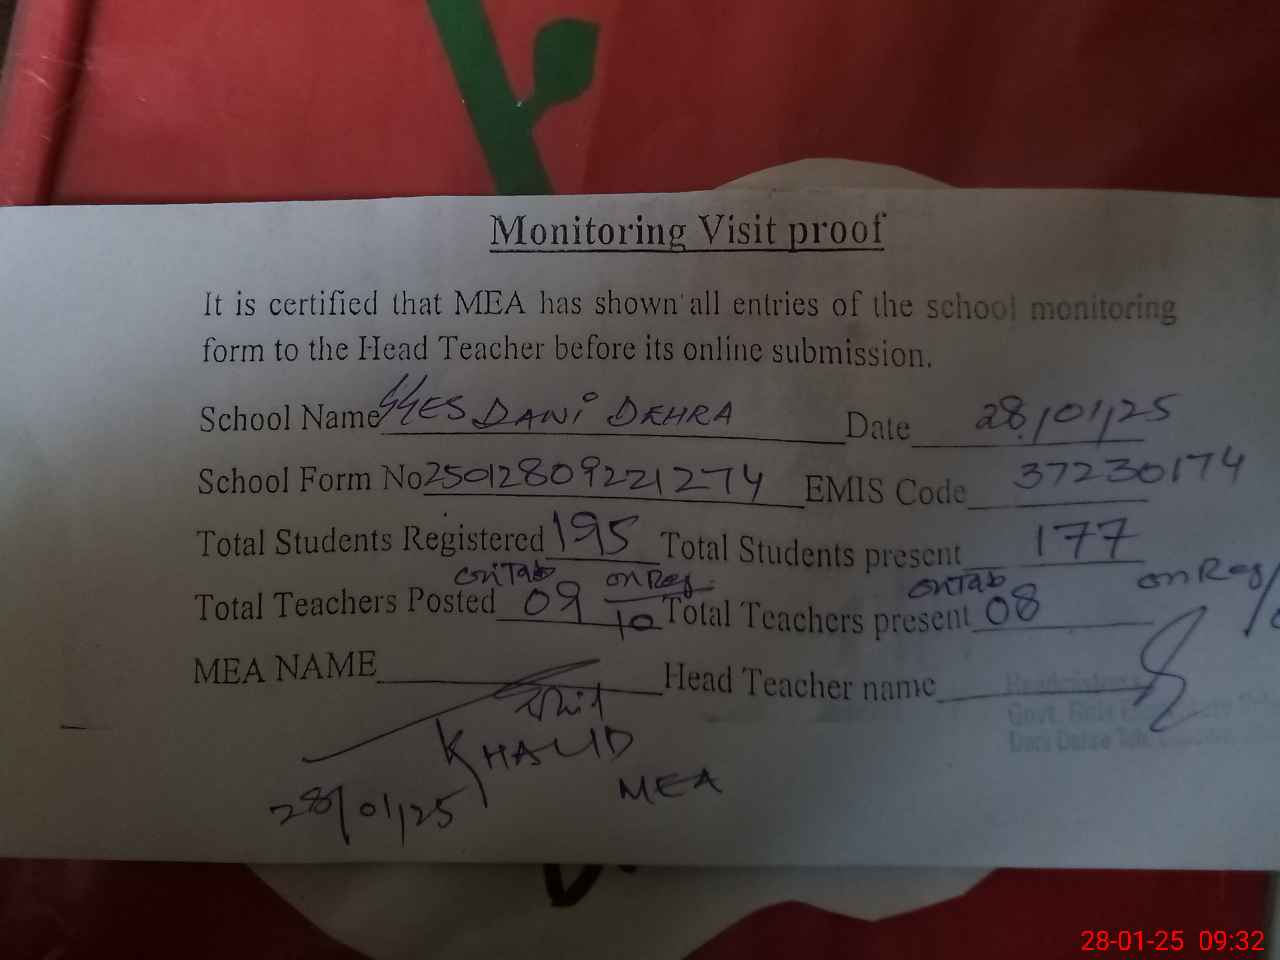 Monitoring Visit proof
It is certified that MEA has shown all entries of the school monitoring
form to the Head Teacher before its online submission.
School Name GGES DANI DEHRA Date 28/01/25
School Form No 25012809221274 EMIS Code 37230174
Total Students Registered 195 Total Students present 177
on Tab on Reg on Tab on Reg
Total Teachers Posted 09 10 Total Teachers present 08
MEA NAME Head Teacher name
Govt. Girls
KHALID
MEA
28/01/25
28-01-25 09:32